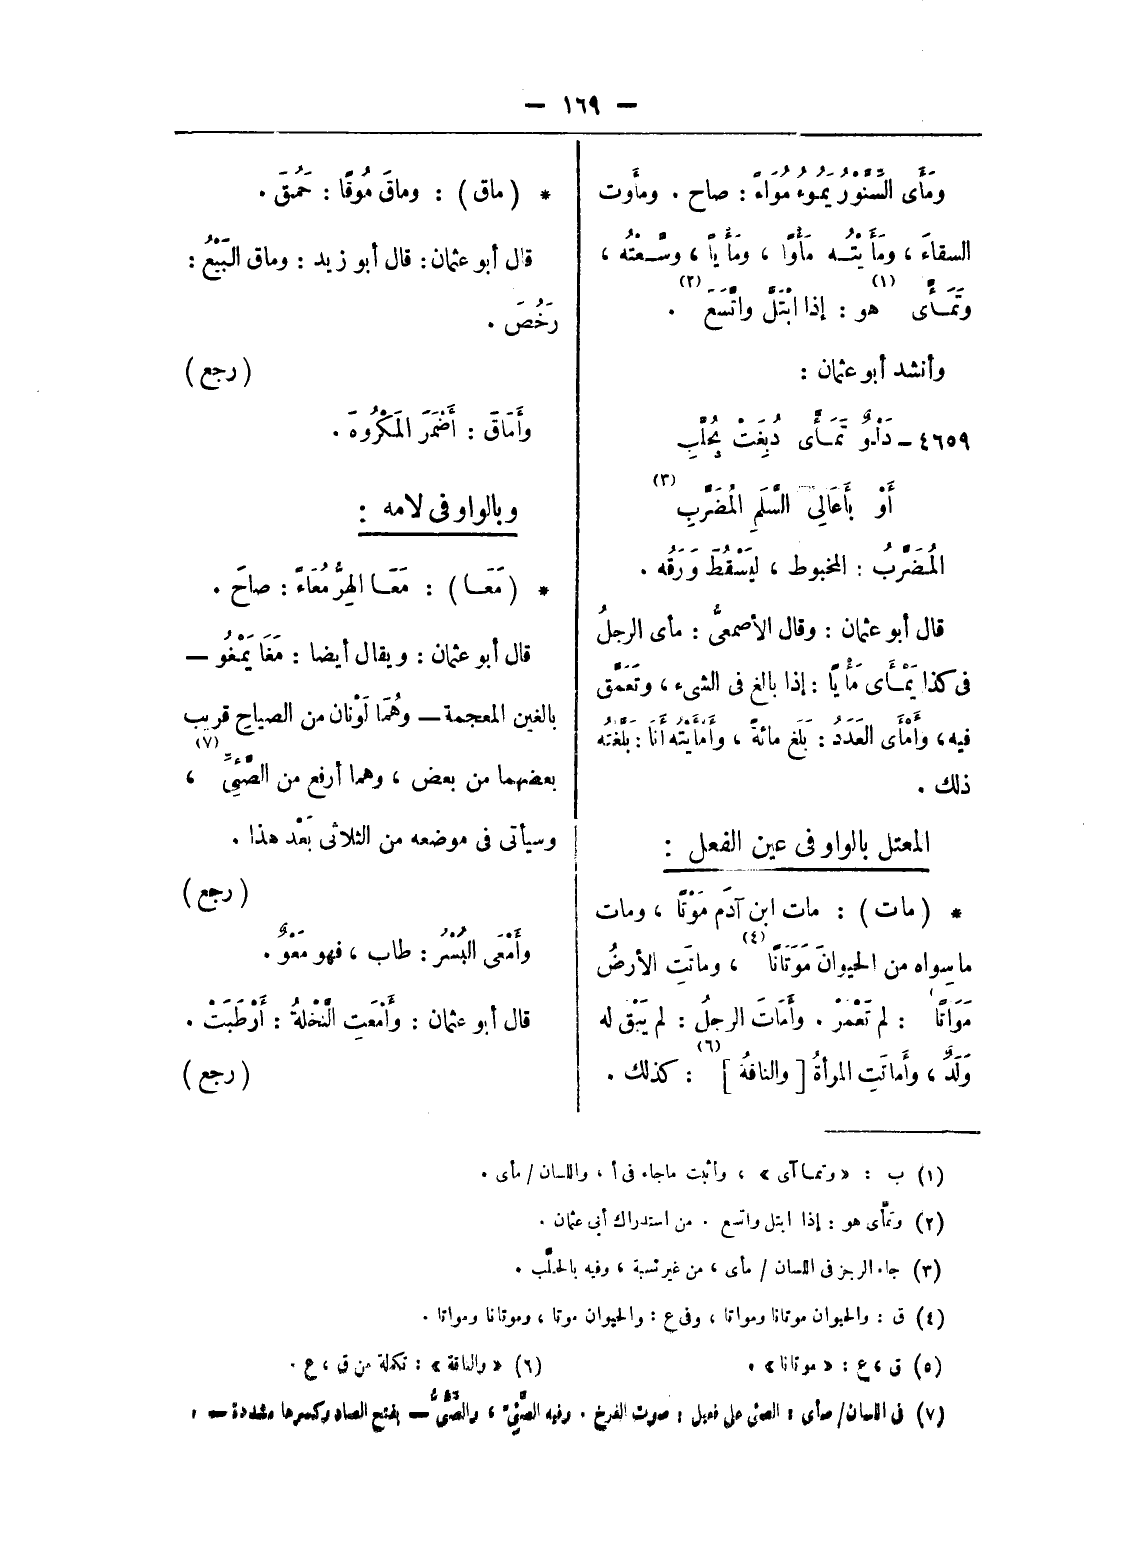 — ١٦٩ —
ومَأَى السِّنَّوْرُ يَمُوءُ مُوَاءً : صاح . ومأوت
السقاءَ ، ومَأَيْتُـه مَأْوًا ، ومَأْيًا ، وسَّـعْتُه ،
وتَمَـأَّى (١) هو : إذا ابْتَلَّ واتَّسَعَ (٢) .
وأنشد أبو عثمان :
٤٦٥٩ – دَلْوٌ تَمَـأَّى دُبِغَتْ بِحُلَّبِ
أَوْ بِأَعَالِى السَّلَمِ المُضَرَّبِ (٣)
المُضَرَّبُ : المخبوط ، ليَسْقُطَ وَرَقُه .
قال أبو عثمان : وقال الأصمعىُّ : مأى الرجلُ
فى كذا يَمْـأَى مَأْيًا : إذا بالغ فى الشىء ، وتَعَمَّق
فيه ، وأَمْأَى العَدَدُ : بَلَغ مائةً ، وأَمْأَيْتُه أنَا : بَلَّغْتُه
ذلك .
المعتل بالواو فى عين الفعل :
* ( مات ) : مات ابن آدَم مَوْتًا ، ومات
ماسِواه من الحيوانَ مَوَتَانًا (٤) ، وماتَتِ الأرضُ
مَوَاتًا : لم تَعْمُرْ . وأَمَاتَ الرجلُ : لم يَبْق له
وَلَدٌ ، وأَماتَتِ المرأةُ [ والناقةُ ] (٦) : كذلك .
* ( ماق ) : وماقَ مُوقًا : حَمُقَ .
قال أبو عثمان : قال أبو زيد : وماق البَيْعُ :
رَخُصَ .
( رجع )
وأَمَاقَ : أَضْمَرَ المَكْرُوهَ .
وبالواو فى لامه :
* ( مَعَـا ) : مَعَـا الهِرُّ مُعَاءً : صاحَ .
قال أبو عثمان : ويقال أيضا : مَغَا يَمْغُو –
بالغين المعجمة – وهُمَا لَوْنان من الصياح قريب
بعضهما من بعض ، وهما أرفع من الصَّئِىِّ (٧) ،
وسيأتى فى موضعه من الثلاثى بَعْد هذا .
( رجع )
وأَمْعَى البُسْرُ : طاب ، فهو مَعْوٌ .
قال أبو عثمان : وأَمْعَتِ النَّخْلةُ : أَرْطَبَتْ .
( رجع )
(١) ب : « وتمـاآى » ، وأثبت ماجاء فى أ ، واللسان / مأى .
(٢) وتمَّأى هو : إذا ابتل واتسع . من استدراك أبى عثمان .
(٣) جاء الرجز فى اللسان / مأى ، من غير نسبة ، وفيه بالحلَّب .
(٤) ق : والحيوان موتانا ومواتا ، وفى ع : والحيوان موتا ، وموتانا ومواتا .
(٥) ق ، ع : « موتانا » .
(٦) « والناقة » : تكملة من ق ، ع .
(٧) فى اللسان / صأى : الصئى على فعيل : صوت الفرخ . وفيه الصَّئِىّ ، والصُّئِىُّ – بفتح الصاد وكسرها مشددة – :